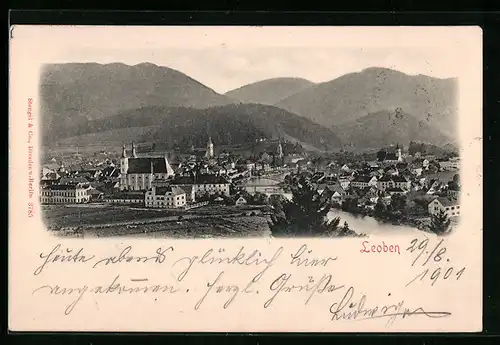 Stengel & Co., Dresden u. Berlin 3785
Leoben
29./8.
1901
Heute abends glücklich hier
angekommen. herzl. Grüße
Ludwig